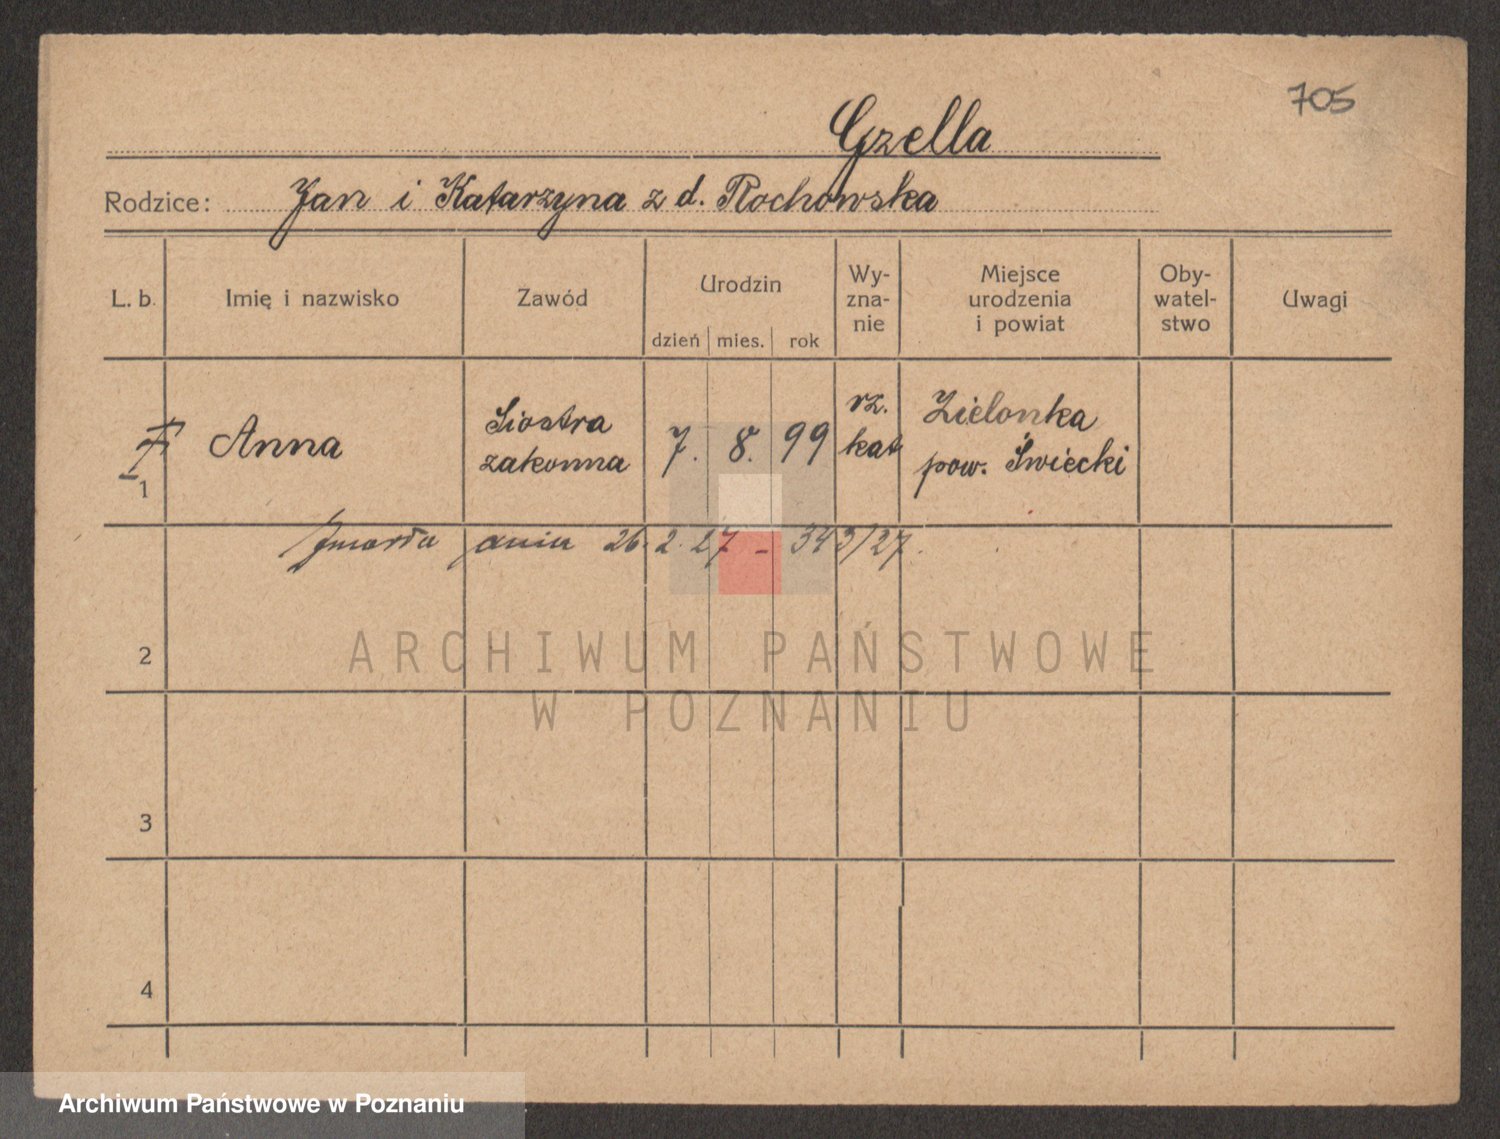 705
Gzella
Rodzice: Jan i Katarzyna z d. Rochowska
L. b. Imię i nazwisko Zawód Urodzin dzień mies. rok Wy-zna-nie Miejsce urodzenia i powiat Oby-watel-stwo Uwagi
1 Anna Siostra zakonna 7. 8. 99 rz. kat Zielonka pow. Świecki
Zmarła dnia 26.2.27 - 343/27.
2
3
4
ARCHIWUM PAŃSTWOWE
W POZNANIU
Archiwum Państwowe w Poznaniu